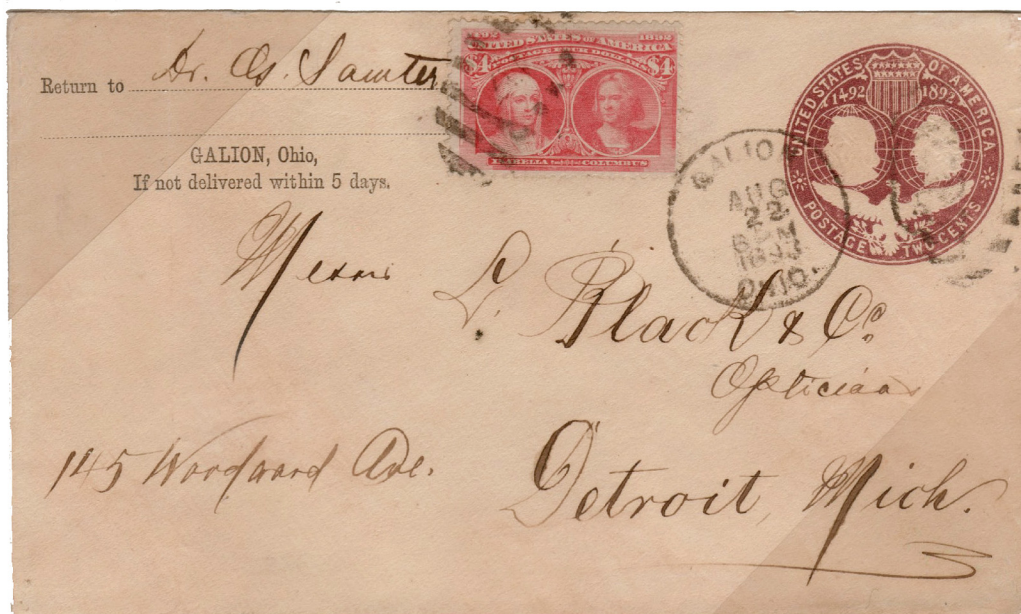 Return to Dr. Os. Sawter
GALION, Ohio,
If not delivered within 5 days.
1492 1892
UNITED STATES OF AMERICA
POSTAGE FOUR DOLLARS
$4 $4
ISABELLA COLUMBUS
GALION
AUG
22
6 PM
1893
OHIO.
UNITED STATES OF AMERICA.
1492 1892
POSTAGE TWO CENTS.
Messrs L. Black & Co
Opticians
145 Woodward Ave.
Detroit, Mich.